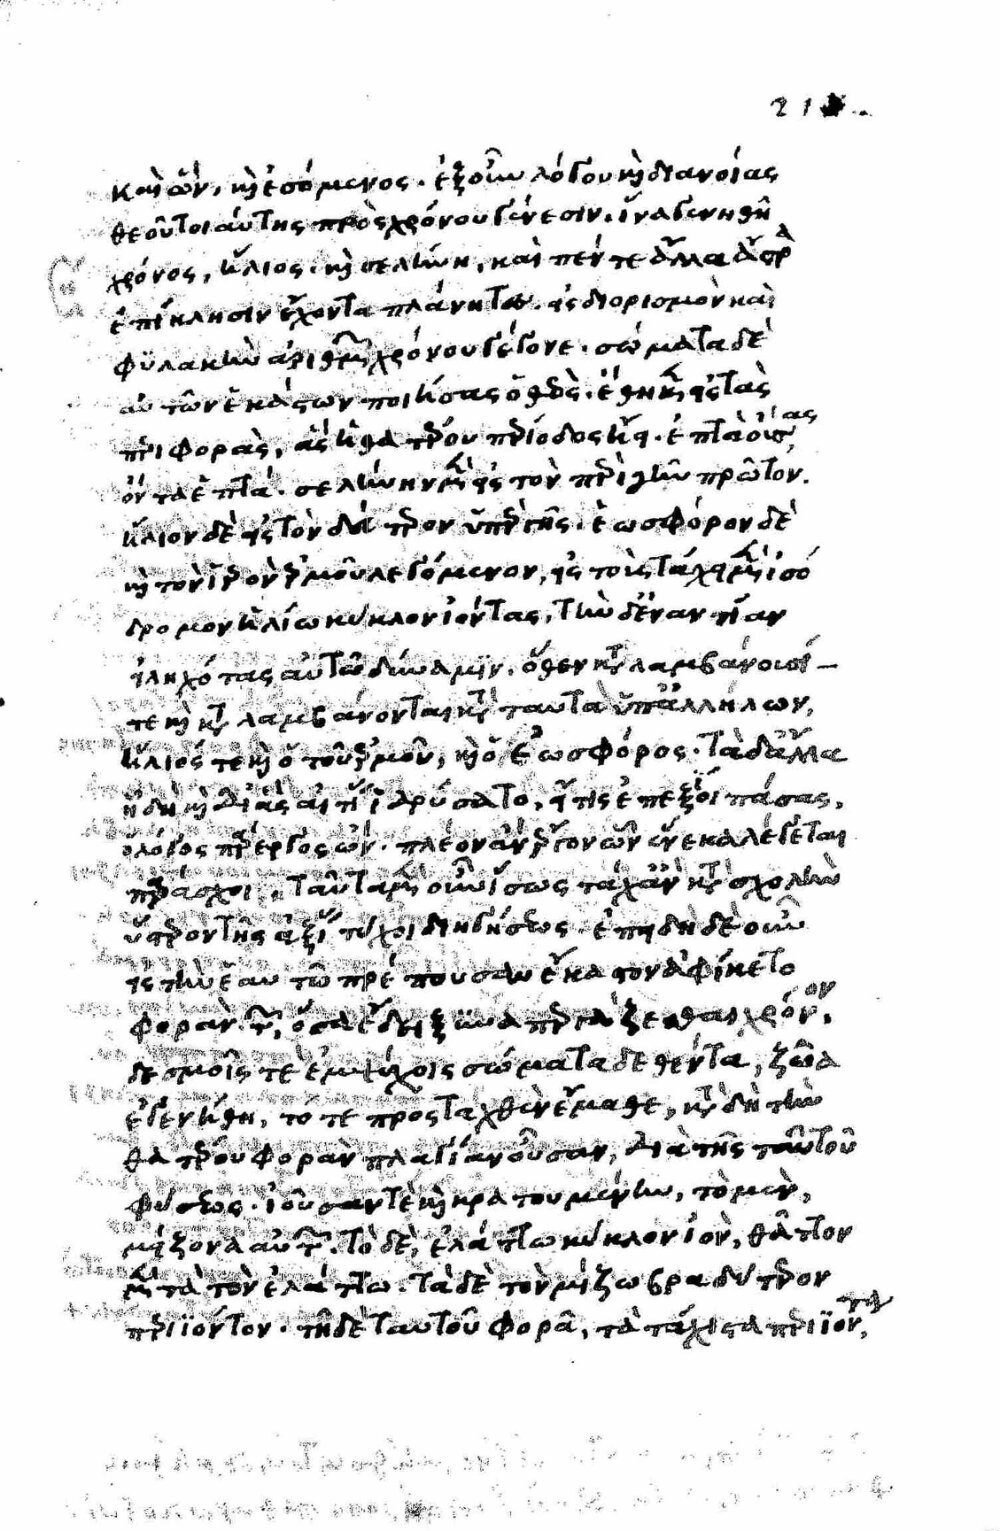 καὶ ὢν, καὶ ἐσόμενος. ἐξ οὖν λόγου καὶ διανοίας
θεοῦ τοιαύτης πρὸς χρόνου γένεσιν. ἵνα γενηθῇ
χρόνος, ἥλιος. καὶ σελήνη, καὶ πέντε ἄλλα ἄστρα
ἐπίκλησιν ἔχοντα πλάνητα. εἰς διορισμὸν καὶ
φυλακὴν ἀριθμῶν χρόνου γέγονε. σώματα δὲ
αὐτῶν ἑκάστων ποιήσας ὁ θεὸς. ἔθηκεν εἰς τὰς
περιφορὰς, ἃς ἡ θατέρου περίοδος ἤει. ἑπτὰ οὔσας
ὄντα ἑπτά. σελήνην μὲν εἰς τὸν περὶ γῆν πρῶτον.
ἥλιον δὲ εἰς τὸν δεύτερον ὑπὲρ γῆς. ἑωσφόρον δὲ
καὶ τὸν ἱερὸν ἑρμοῦ λεγόμενον, εἰς τοὺς τάχει μὲν ἰσό
δρομον ἡλίω κύκλον ἰόντας, τὴν δ' ἐναντίαν
εἰληχότας αὐτῶ δύναμιν. ὅθεν καταλαμβάνουσί
τε καὶ καταλαμβάνονται κατὰ ταυτὰ ὑπ' ἀλλήλων,
ἥλιός τε καὶ ὁ τοῦ ἑρμοῦ, καὶ ὁ ἑωσφόρος. τὰ δ' ἄλλα
οἷ δὴ καὶ δι' ἃς αἰτίας ἱδρύσατο, εἴ τις ἐπεξίοι πάσας,
ὁ λόγος πάρεργος ὢν. πλέον ἂν ἔργον ὧν ἕνεκα λέγεται
παράσχοι. ταῦτα μὲν οὖν ἴσως τάχ' ἂν κατὰ σχολὴν
ὕστερον τῆς ἀξίας τύχοι διηγήσεως. ἐπειδὴ δὲ οὖν
εἰς τὴν ἑαυτῶ πρέπουσαν ἕκαστον ἀφίκετο
φορὰν τῶν, ὅσα ἔδει ξυναπεργάζεσθαι χρόνον.
δεσμοῖς τε ἐμψύχοις σώματα δεθέντα, ζῶα
ἐγενήθη, τό τε προσταχθὲν ἔμαθε, κατὰ δὴ τὴν
θατέρου φορὰν πλαγίαν οὖσαν, διὰ τῆς ταυτοῦ
φύσεως. ἰοῦσάν τε καὶ κρατουμένην, τὸ μὲν,
μείζονα αὐτῶν. τὸ δὲ, ἐλάττω κύκλον ἰὸν, θᾶττον
μὲν τὰ τὸν ἐλάττω. τὰ δὲ τὸν μείζω βραδύτερον
περιϊόντον. τῆ δὲ ταυτοῦ φορᾶ, τὰ τάχιστα περιϊόντα,